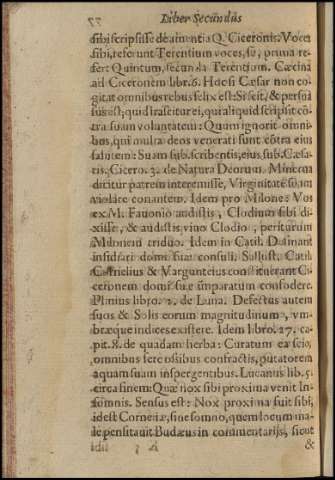 Liber Secundus
sibi scripsisse de amentia Q. Ciceronis. Voces
sibi, referunt Terentium voces, sū, prima re-
fert Quintum, secunda Terentium. Cæcina
ad Ciceronem libr. 6. Hoc si Cæsar non co-
gitat omnibus rebus felix est: Si scit, & persuā
sus est, quid irascitur ei, qui aliquid scripsit cō
tra suam voluntatem: Quum ignorit omni-
bus, qui multa deos venerati sunt cōtra eius
salutem: Suam sub. scribentis, eius, sub. Cæsa-
ris. Cicero. 3. de Natura Deorum. Minerua
dicitur patrem interemisse, Virginitatē suam
violare conantem. Idem pro Milone: Vos
ex M. Fauonio audistis, Clodium sibi di-
xisse, & audistis, viuo Clodio, periturum
Milonem triduo. Idem in Catil. Desinant
insidiari domi suæ consuli. Sallust. Catil
Cornelius & Vargunteius constituerant Ci-
ceronem domi suæ imparatum confodere.
Plinius libro. 2. de Luna. Defectus autem
suos & Solis eorum magnitudinum, vm-
bræque indices existere. Idem libro. 27. ca-
pit. 8. de quadam herba: Curatum ea scio,
omnibus fere ossibus confractis, putatorem
aquam suam inspergentibus. Lucanus lib. 5.
circa finem: Quæ nox sibi proxima venit In-
somnis. Sensus est: Nox proxima fuit sibi,
id est Corneliæ, sine somno, quem locum ma-
le pensitauit Budæus in commentarijs, sicut
&